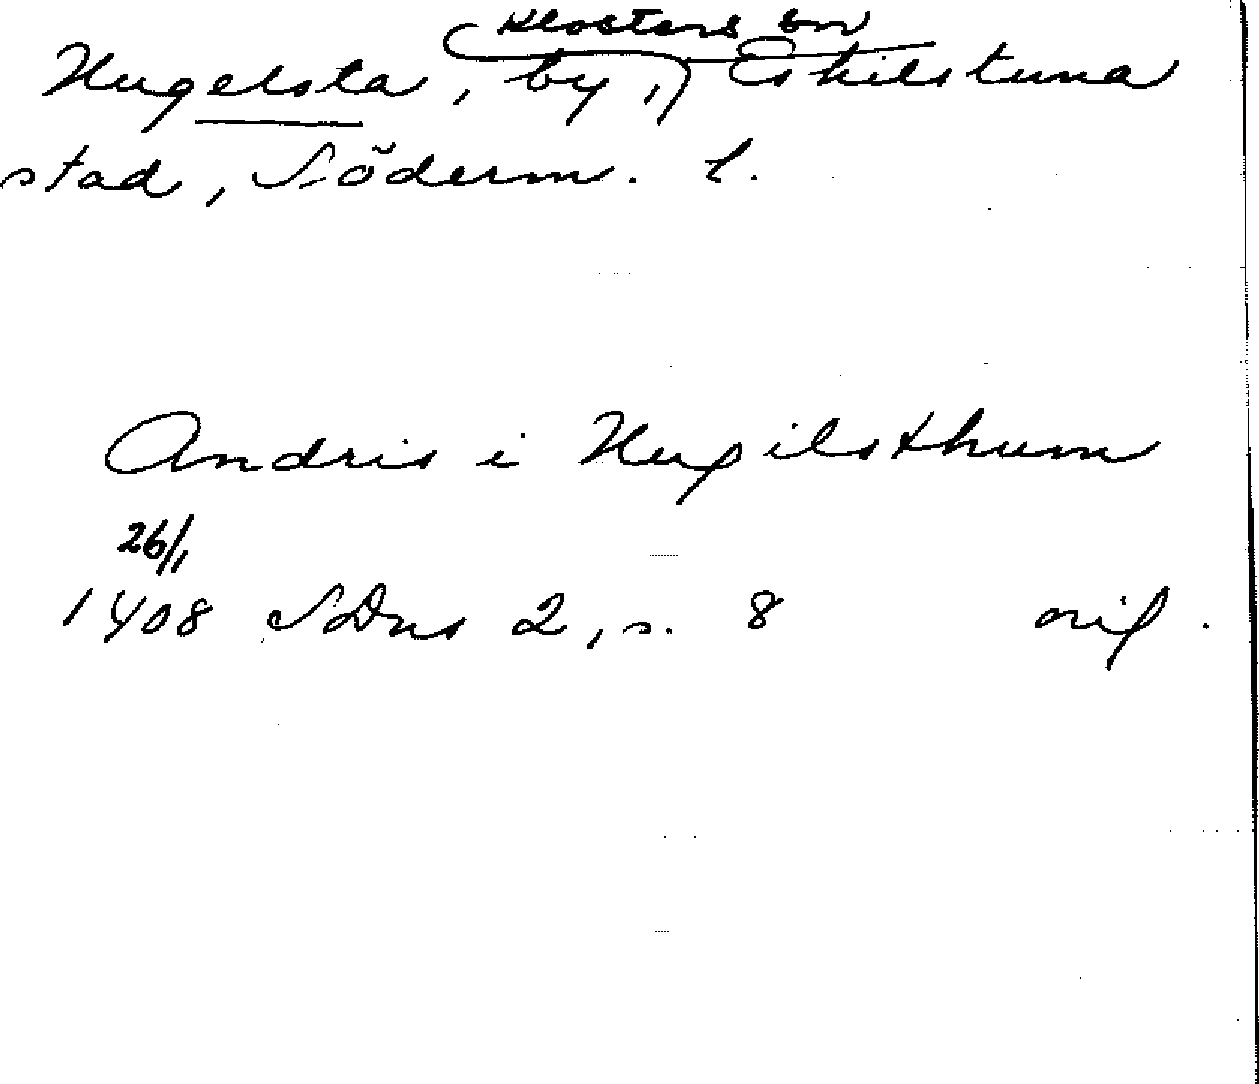 Klosters sn
Hugelsta, by, Eskilstuna
stad, Söderm. l.
Andris i Hugilsthum
26/1
1408 SDns 2, s. 8 orig.